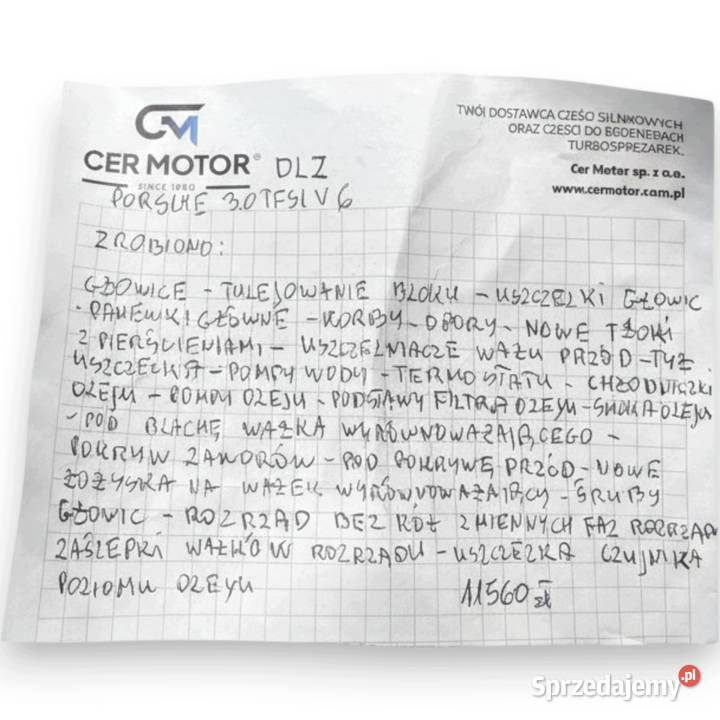 CM
CER MOTOR® DLZ
SINCE 1980
TWÓJ DOSTAWCA CZEŚO SILNKOWYCH
ORAZ CZESCI DO EGOENEBACH
TURBOSPPEZAREK.
Cer Motor sp. z o.o.
www.cermotor.com.pl
PORSCHE 3.0 TFSI V6
ZROBIONO:
GŁOWICE - TULEJOWANIE BLOKU - USZCZELKI GŁOWIC
- PANEWKI GŁÓWNE - KORBY - OPORY - NOWE TŁOKI
Z PIERŚCIENIAMI - USZCZELNIACZE WAŁU PRZÓD - TYŁ
USZCZELKA - POMPY WODY - TERMOSTATU - CHŁODNICZKI
OLEJU - POMPY OLEJU - PODSTAWY FILTRA OLEJU - SMOKA OLEJU
- POD BLACHĘ WAŁKA WYRÓWNOWAŻAJĄCEGO -
POKRYW ZAWORÓW - POD POKRYWĘ PRZÓD - NOWE
ŁOŻYSKA NA WAŁEK WYRÓWNOWAŻAJĄCY - ŚRUBY
GŁOWIC - ROZRZĄD BEZ KÓŁ ZMIENNYCH FAZ ROZRZĄDU
ZAŚLEPKI WAŁKÓW ROZRZĄDU - USZCZELKA CZUJNIKA
POZIOMU OLEJU 11560 zł
Sprzedajemy.pl